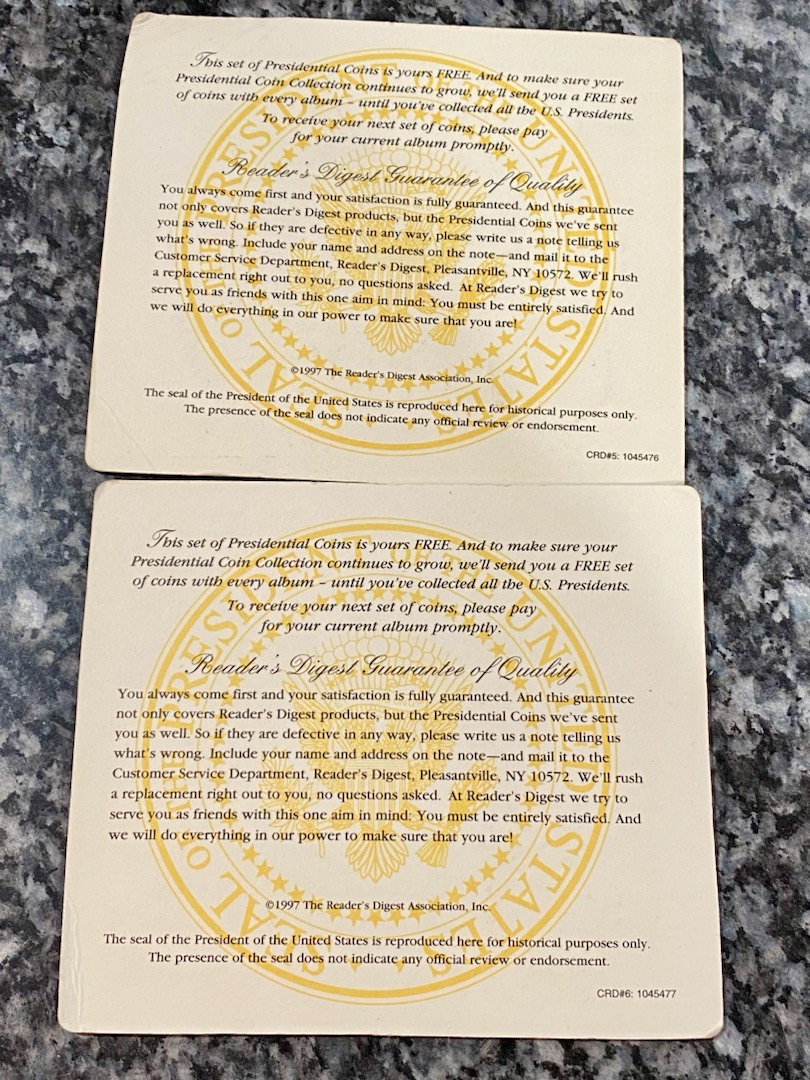 This set of Presidential Coins is yours FREE. And to make sure your
Presidential Coin Collection continues to grow, we'll send you a FREE set
of coins with every album – until you've collected all the U.S. Presidents.
To receive your next set of coins, please pay
for your current album promptly.
Reader's Digest Guarantee of Quality
You always come first and your satisfaction is fully guaranteed. And this guarantee
not only covers Reader's Digest products, but the Presidential Coins we've sent
you as well. So if they are defective in any way, please write us a note telling us
what's wrong. Include your name and address on the note—and mail it to the
Customer Service Department, Reader's Digest, Pleasantville, NY 10572. We'll rush
a replacement right out to you, no questions asked. At Reader's Digest we try to
serve you as friends with this one aim in mind: You must be entirely satisfied. And
we will do everything in our power to make sure that you are!
©1997 The Reader's Digest Association, Inc.
The seal of the President of the United States is reproduced here for historical purposes only.
The presence of the seal does not indicate any official review or endorsement.
CRD#5: 1045476
SEAL OF THE PRESIDENT OF THE UNITED STATES
This set of Presidential Coins is yours FREE. And to make sure your
Presidential Coin Collection continues to grow, we'll send you a FREE set
of coins with every album – until you've collected all the U.S. Presidents.
To receive your next set of coins, please pay
for your current album promptly.
Reader's Digest Guarantee of Quality
You always come first and your satisfaction is fully guaranteed. And this guarantee
not only covers Reader's Digest products, but the Presidential Coins we've sent
you as well. So if they are defective in any way, please write us a note telling us
what's wrong. Include your name and address on the note—and mail it to the
Customer Service Department, Reader's Digest, Pleasantville, NY 10572. We'll rush
a replacement right out to you, no questions asked. At Reader's Digest we try to
serve you as friends with this one aim in mind: You must be entirely satisfied. And
we will do everything in our power to make sure that you are!
©1997 The Reader's Digest Association, Inc.
The seal of the President of the United States is reproduced here for historical purposes only.
The presence of the seal does not indicate any official review or endorsement.
CRD#6: 1045477
SEAL OF THE PRESIDENT OF THE UNITED STATES